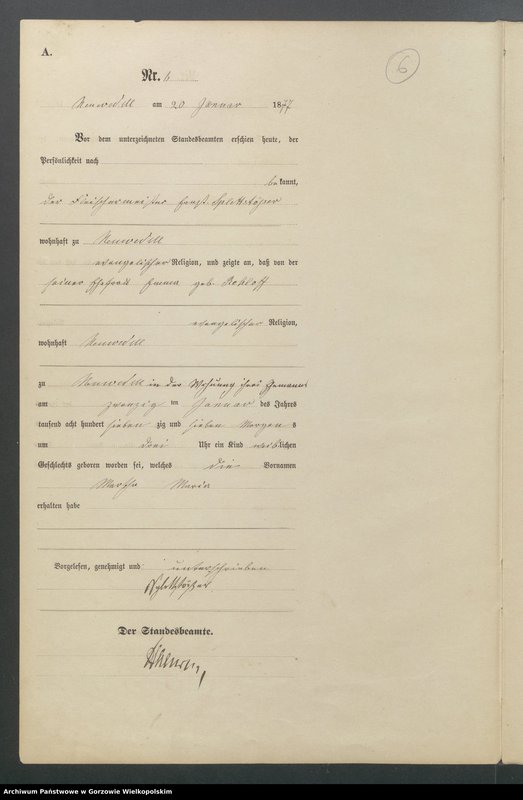 A.
6
Nr. 6
Neuwedell am 20 Januar 1877
Vor dem unterzeichneten Standesbeamten erschien heute, der
Persönlichkeit nach
bekannt,
der Fleischermeister Ernst Splettstößer
wohnhaft zu Neuwedell
evangelischer Religion, und zeigte an, daß von der
seiner Ehefrau Emma geb.
evangelischer Religion,
wohnhaft Neuwedell
zu Neuwedell in der Wohnung ihres Ehemannes
am zwanzig ten Januar des Jahres
tausend acht hundert sieben zig und sieben Morgens
um drei Uhr ein Kind weiblichen
Geschlechts geboren worden sei, welches die Vornamen
Martha Maria
erhalten habe
Vorgelesen, genehmigt und unterschrieben
Splettstößer
Der Standesbeamte.
Archiwum Państwowe w Gorzowie Wielkopolskim